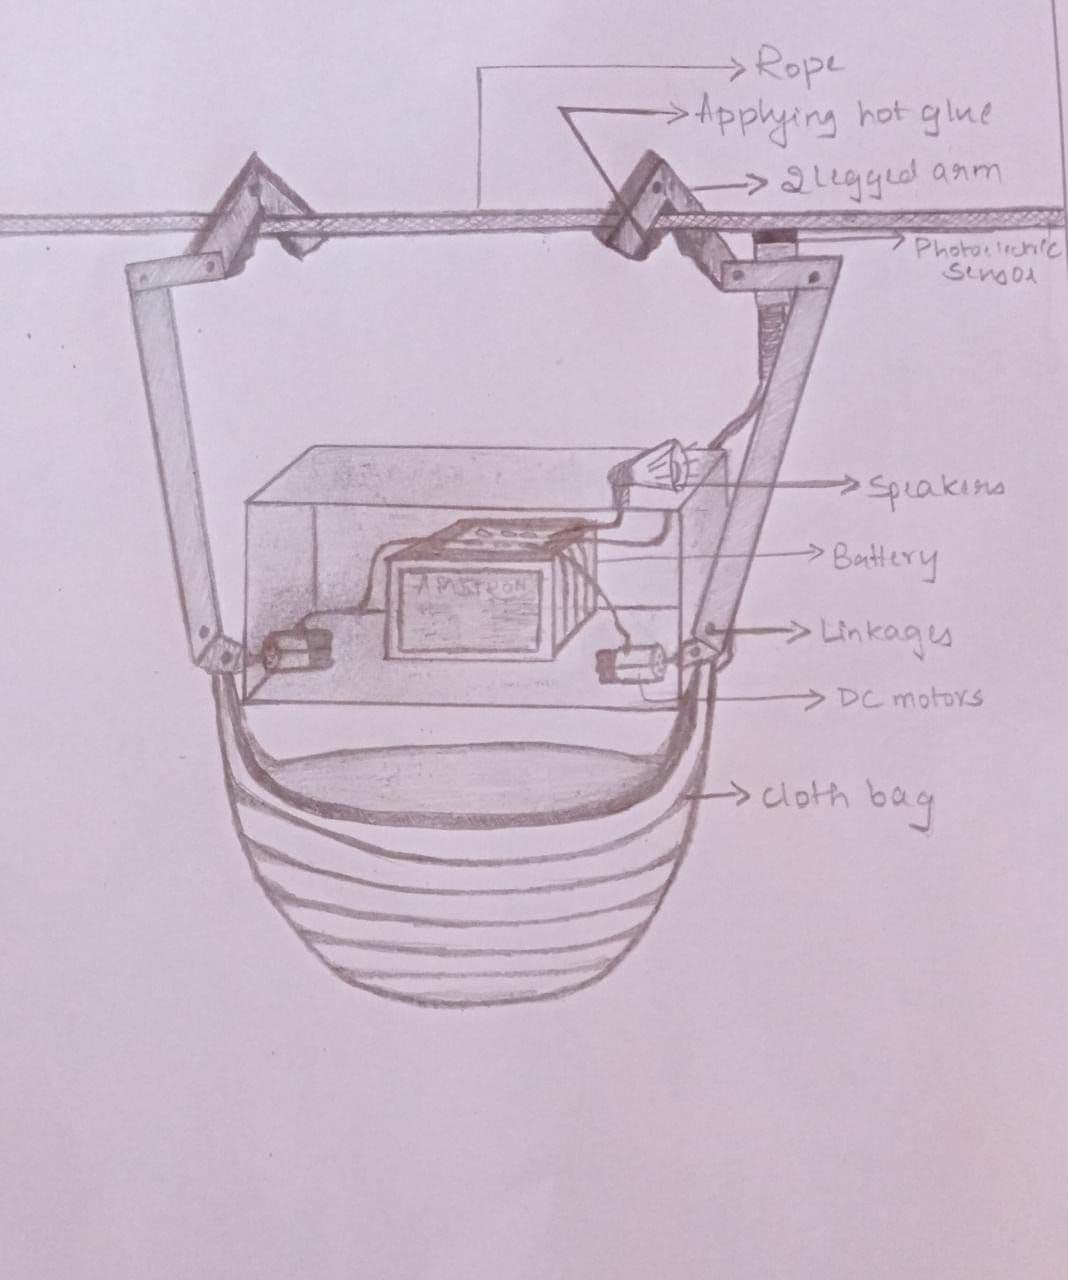 Rope
Applying hot glue
2 legged arm
Photoelectric
Sensor
Speakers
Battery
Linkages
DC motors
cloth bag